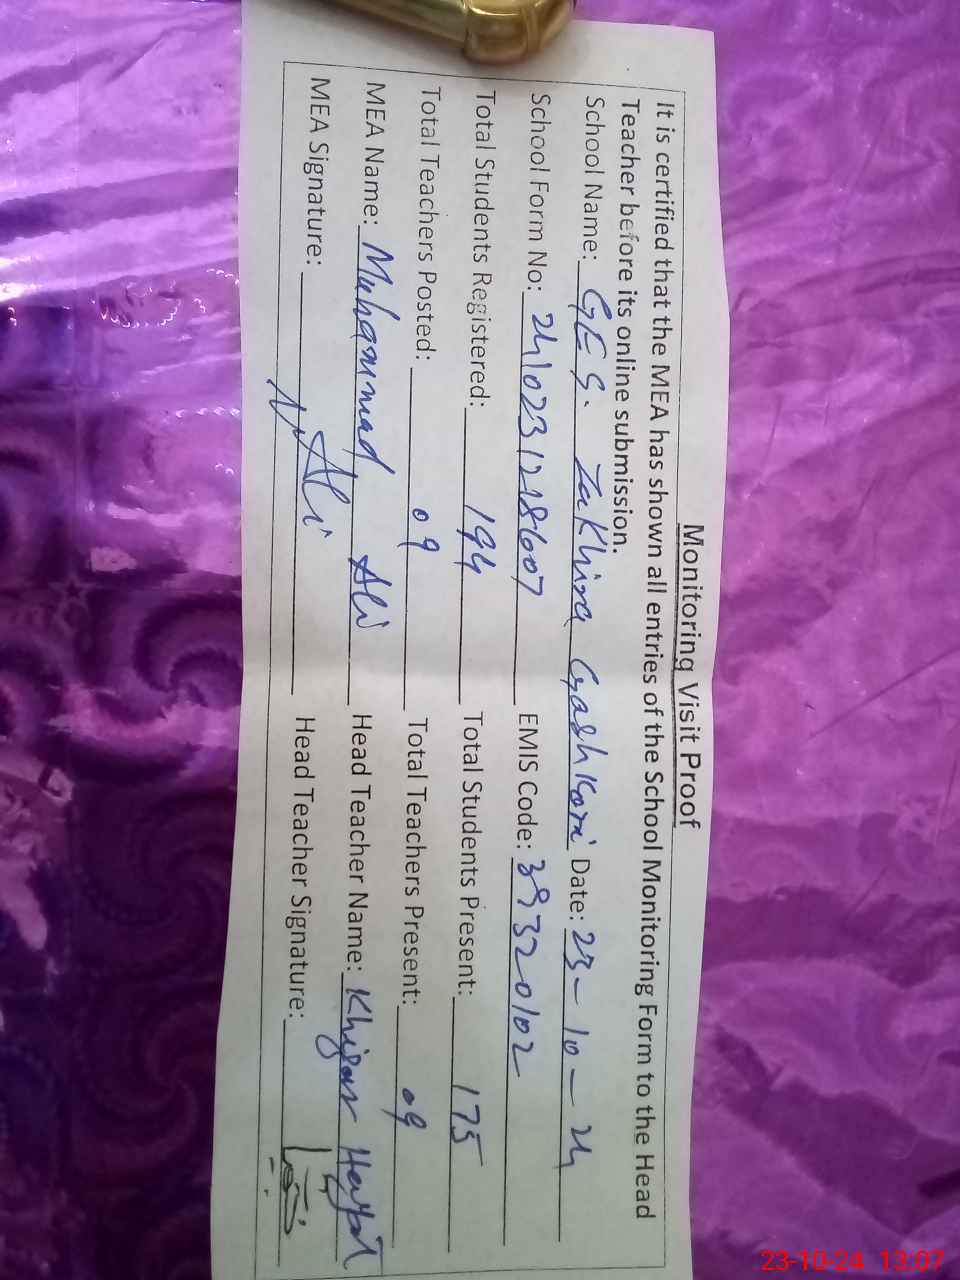 Monitoring Visit Proof
It is certified that the MEA has shown all entries of the School Monitoring Form to the Head
Teacher before its online submission.
School Name: GES. Zakhira Gashkori Date: 23-10-24
School Form No: 241023121218607 EMIS Code: 39320102
Total Students Registered: 194 Total Students Present: 175
Total Teachers Posted: 09 Total Teachers Present: 09
MEA Name: Muhammad Ali Head Teacher Name: Khizar Hayat
MEA Signature: M Ali Head Teacher Signature:
23-10-24 13:07